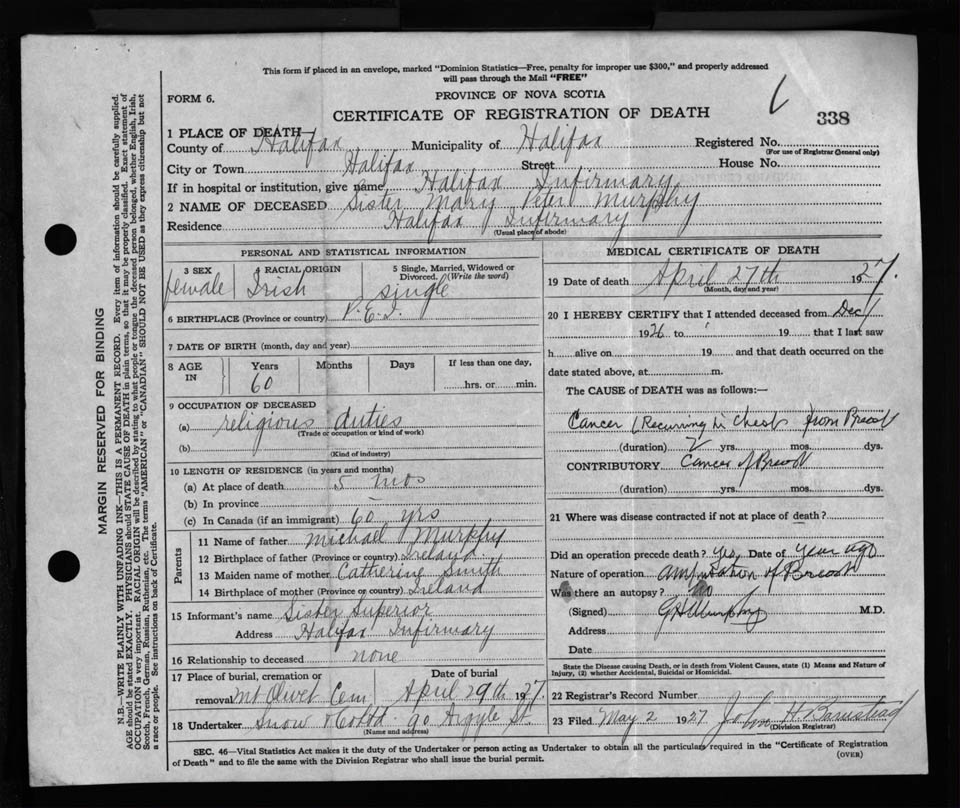 This form if placed in an envelope, marked "Dominion Statistics—Free, penalty for improper use $300," and properly addressed
will pass through the Mail "FREE"
FORM 6.
PROVINCE OF NOVA SCOTIA
CERTIFICATE OF REGISTRATION OF DEATH
338
1 PLACE OF DEATH—
County of Halifax Municipality of Halifax Registered No.
(For use of Registrar General only)
City or Town Halifax Street House No.
If in hospital or institution, give name Halifax Infirmary
2 NAME OF DECEASED Sister Mary Peter Murphy
Residence Halifax Infirmary
(Usual place of abode)
PERSONAL AND STATISTICAL INFORMATION
3 SEX 4 RACIAL ORIGIN 5 Single, Married, Widowed or
Divorced. (Write the word)
female Irish single
6 BIRTHPLACE (Province or country) P.E.I.
7 DATE OF BIRTH (month, day and year)
8 AGE IN Years Months Days If less than one day,
60 hrs. or min.
9 OCCUPATION OF DECEASED
(a) religious duties
(Trade or occupation or kind of work)
(b)
(Kind of industry)
10 LENGTH OF RESIDENCE (in years and months)
(a) At place of death 5 mos
(b) In province
(c) In Canada (if an immigrant) 60 yrs
Parents
11 Name of father Michael Murphy
12 Birthplace of father (Province or country) Ireland
13 Maiden name of mother Catherine Smith
14 Birthplace of mother (Province or country) Ireland
15 Informant's name Sister Superior
Address Halifax Infirmary
16 Relationship to deceased none
17 Place of burial, cremation or Date of burial
removal Mt Olivet Cem April 29th 1927.
18 Undertaker Snow & Co Ltd. 90 Argyle St.
(Name and address)
MEDICAL CERTIFICATE OF DEATH
19 Date of death April 27th 1927
(Month, day and year)
20 I HEREBY CERTIFY that I attended deceased from Dec
1926 to 19 that I last saw
h alive on 19 and that death occurred on the
date stated above, at m.
The CAUSE of DEATH was as follows:—
Cancer (Recurring in Chest from Breast
(duration) 2 yrs. mos. dys.
CONTRIBUTORY Cancer of Breast
(duration) yrs. mos. dys.
21 Where was disease contracted if not at place of death?
Did an operation precede death? Yes Date of year ago
Nature of operation amputation of Breast
Was there an autopsy? no
(Signed) G H Murphy M.D.
Address
Date
State the Disease causing Death, or in death from Violent Causes, state (1) Means and Nature of
Injury, (2) whether Accidental, Suicidal or Homicidal.
22 Registrar's Record Number
23 Filed May 2 1927 John H Barnstead
(Division Registrar)
SEC. 46—Vital Statistics Act makes it the duty of the Undertaker or person acting as Undertaker to obtain all the particulars required in the "Certificate of Registration
of Death" and to file the same with the Division Registrar who shall issue the burial permit.
(OVER)
MARGIN RESERVED FOR BINDING
N.B.—WRITE PLAINLY WITH UNFADING INK—THIS IS A PERMANENT RECORD. Every item of information should be carefully supplied.
AGE should be stated EXACTLY. PHYSICIANS should STATE CAUSE OF DEATH in plain terms, so that it may be properly classified. Exact statement of
OCCUPATION is very important. RACIAL ORIGIN will be described by stating to what people or tongue the deceased person belonged, whether English, Irish,
Scotch, French, German, Russian, Ruthenian, etc. The terms "AMERICAN" or "CANADIAN" SHOULD NOT BE USED as they express citizenship but not
a race or people. See instructions on back of Certificate.